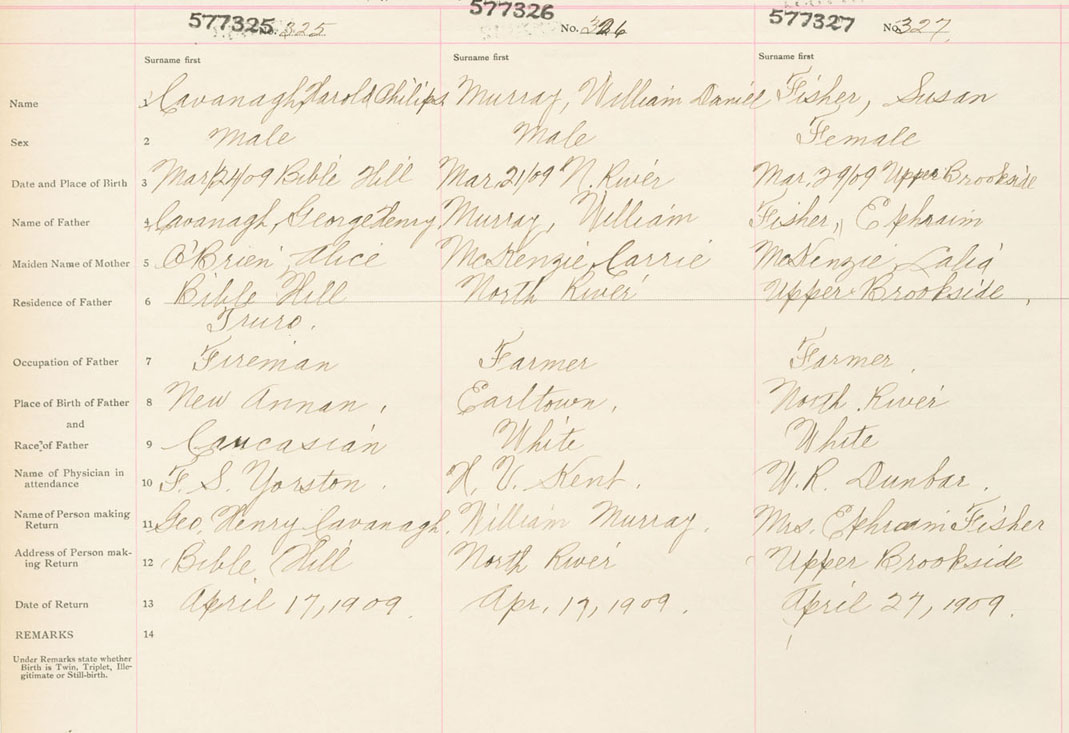 577325 No. 325 577326 No. 326 577327 No. 327
Surname first Surname first Surname first
Name 1 Cavanagh, Harold Philips Murray, William Daniel Fisher, Susan
Sex 2 Male Male Female
Date and Place of Birth 3 Mar/24/09 Bible Hill Mar. 21/09 N. River Mar. 29/09 Upper Brookside
Name of Father 4 Cavanagh, George Henry Murray, William Fisher, Ephraim
Maiden Name of Mother 5 O'Brien, Alice McKenzie, Carrie McKenzie, Lalia
Residence of Father 6 Bible Hill North River Upper Brookside
Truro.
Occupation of Father 7 Fireman Farmer Farmer.
Place of Birth of Father 8 New Annan. Earltown. North River
and
Race of Father 9 Caucasian White White
Name of Physician in
attendance 10 F. S. Yorston. H. V. Kent. W. R. Dunbar.
Name of Person making
Return 11 Geo. Henry Cavanagh. William Murray. Mrs. Ephraim Fisher
Address of Person mak-
ing Return 12 Bible Hill North River Upper Brookside
Date of Return 13 April 17, 1909. Apr. 17, 1909. April 27, 1909.
REMARKS 14
Under Remarks state whether
Birth is Twin, Triplet, Ille-
gitimate or Still-birth.